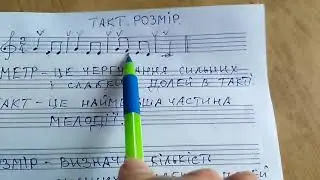 ТАКТ. РОЗМІР.
2
4
МЕТР - ЦЕ ЧЕРГУВАННЯ СИЛЬНИХ
І СЛАБКИХ ДОЛЕЙ В ТАКТІ
ТАКТ - ЦЕ НАЙМЕНША ЧАСТИНА
МЕЛОДІЇ.
РОЗМІР - ВИЗНАЧАЄ КІЛЬКІСТЬ